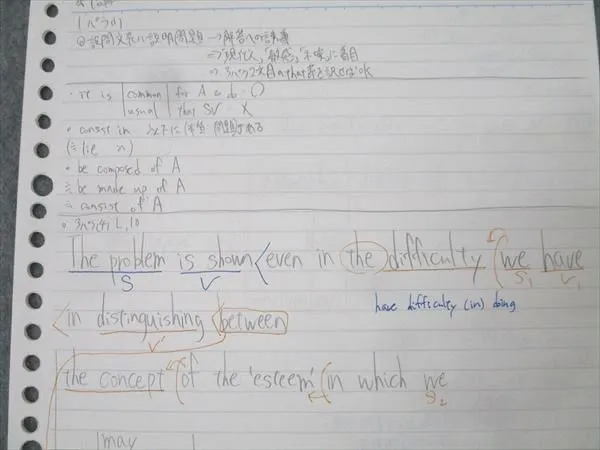 1パラ(1)
◎設問文老ハ説明問題 → 解答への
⇒「現代人」「敏感」「不味」に着目
⇒ 3パラ2文目のthat節を訳せばOK
・It is common for A to do 〇
usual that SV ×
・consist in
(≒ lie in)
・be composed of A
≒ be made up of A
≒ consist of A
・3パラ(4) L,10
The problem is shown <even in the difficulty (we have
S V S₁ V₁
have difficulty (in) doing
<in distinguishing <between
V'
the concept (of the 'esteem' (in which we
S₂
may